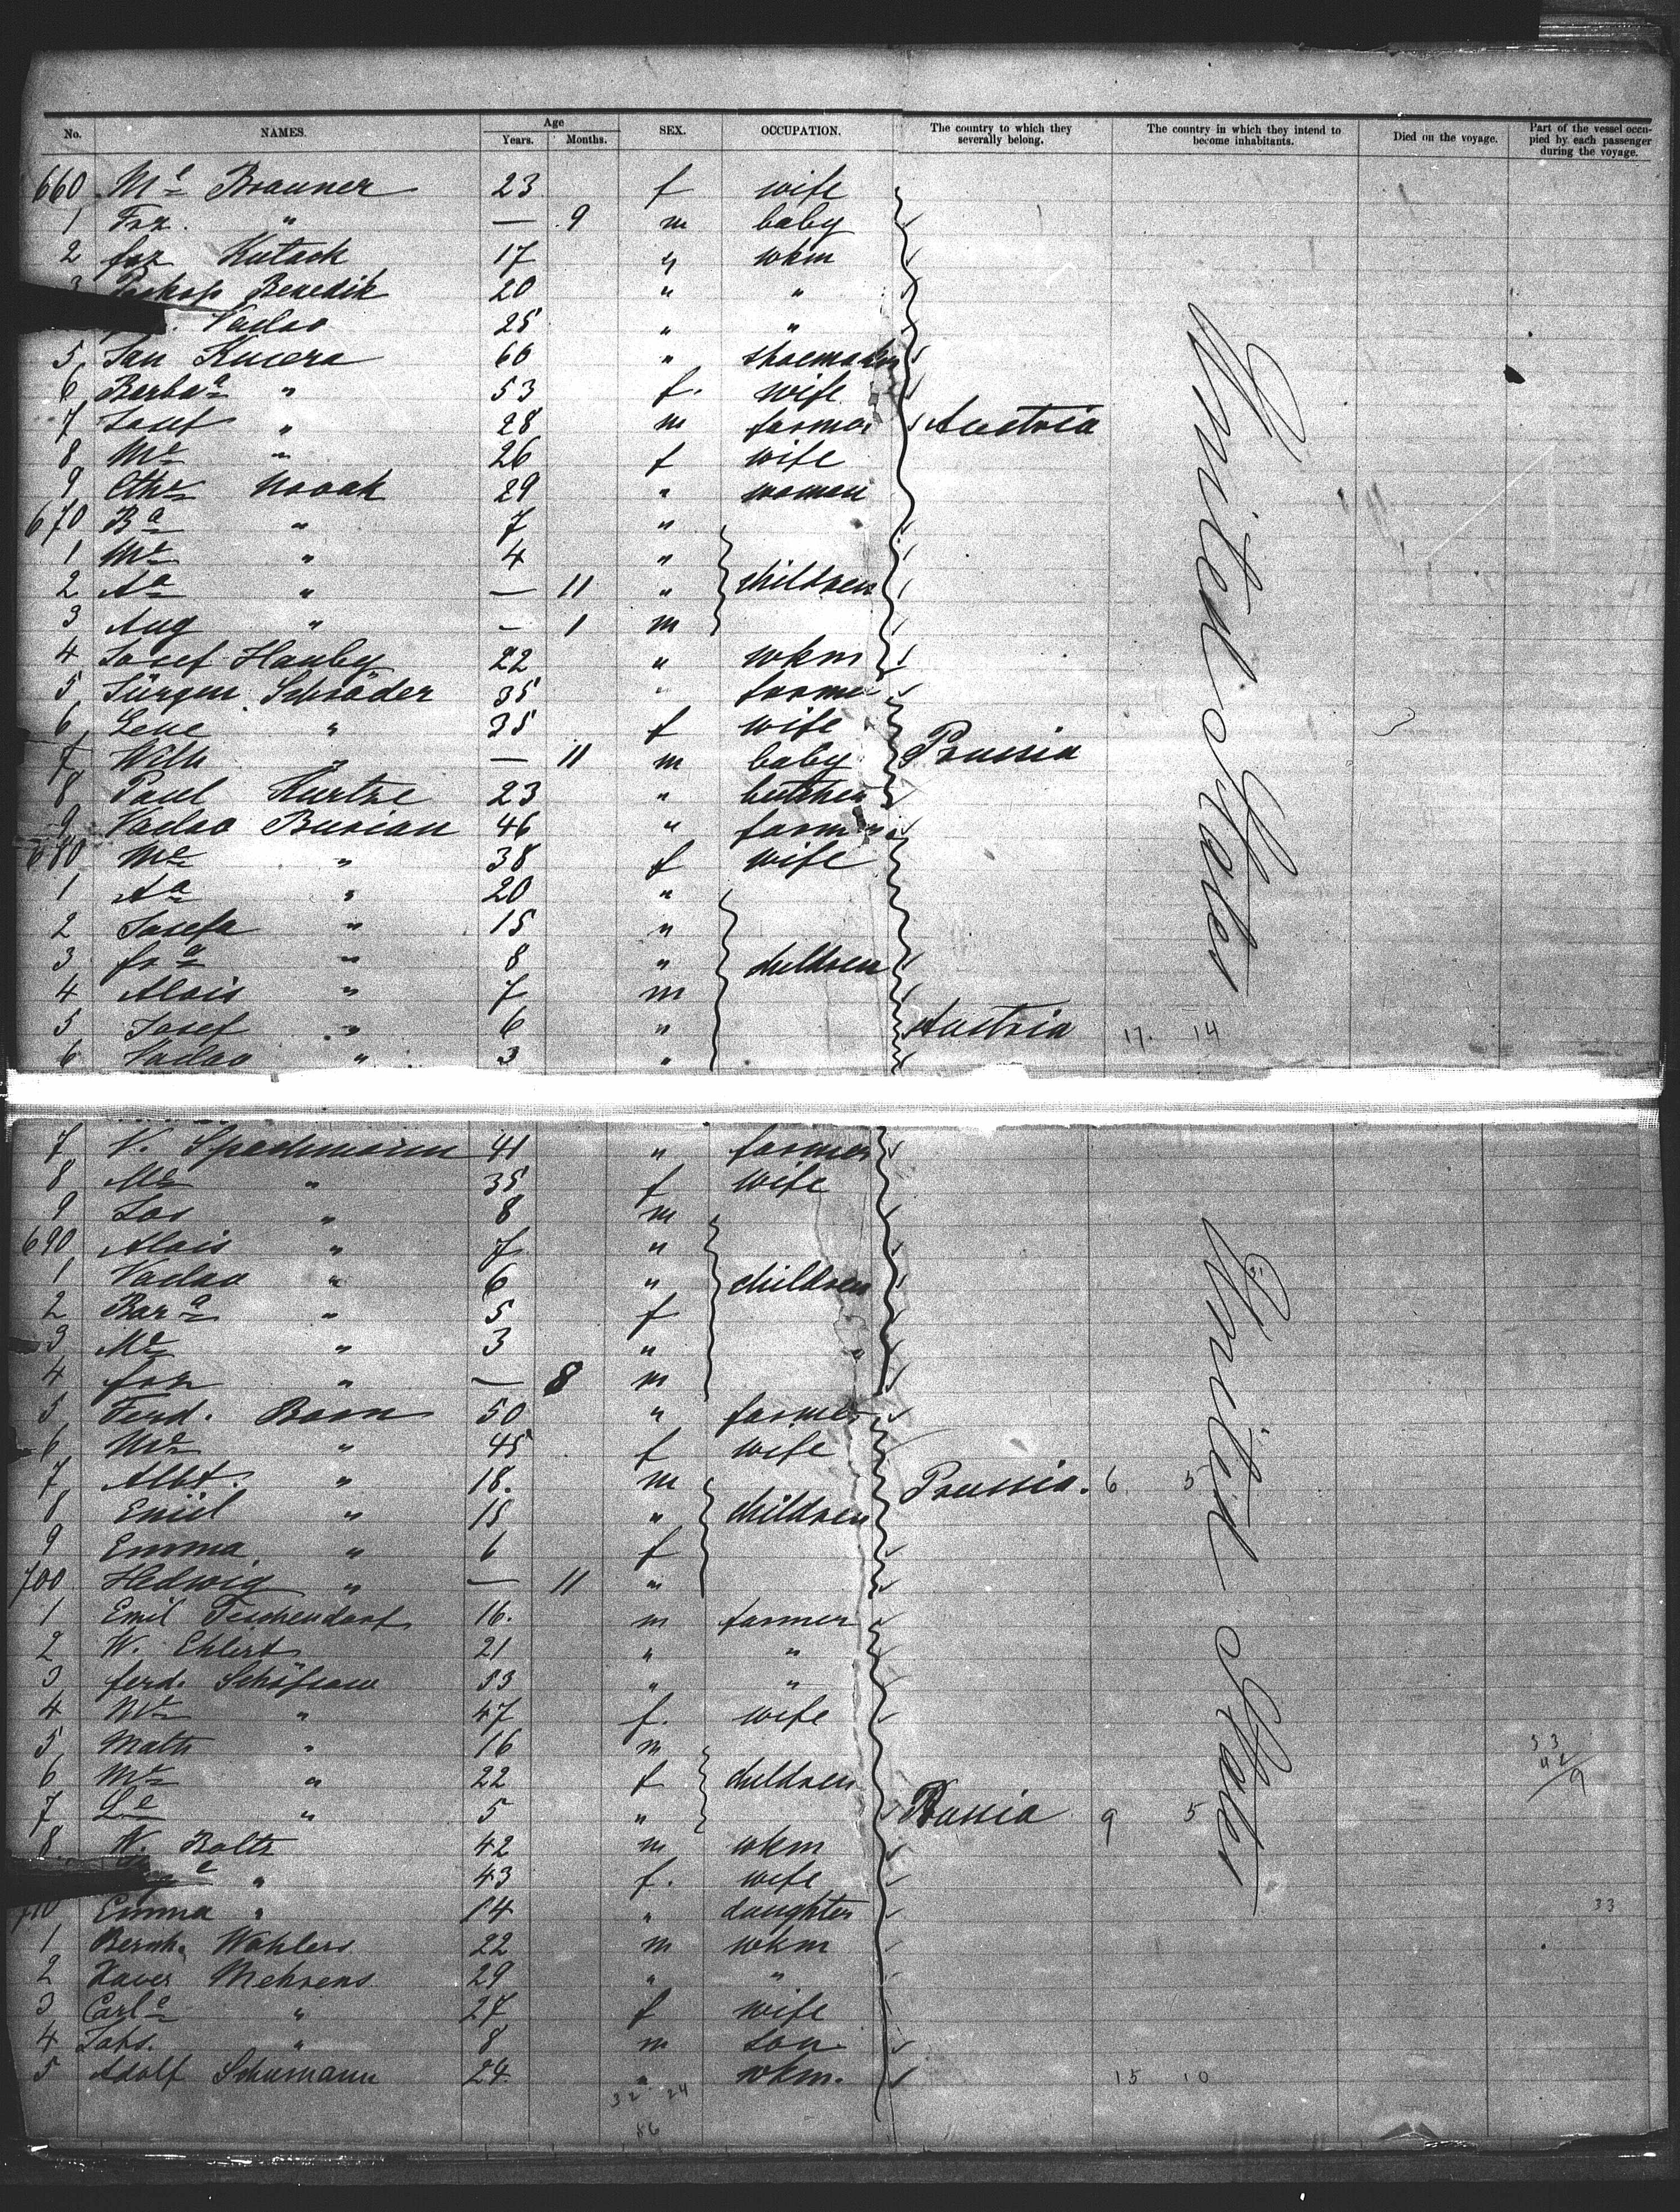 No. NAMES. Age Years. Months. SEX. OCCUPATION. The country to which they severally belong. The country in which they intend to become inhabitants. Died on the voyage. Part of the vessel occupied by each passenger during the voyage.
660 Me Brauner 23 f wife
1 Frz. " — 9 m baby
2 frz Hutack 17 " wkm
3 Benedik 20 " "
Vaclav 25 " "
5 Jan Kucera 60 " shoemaker
6 Barbaa " 53 f. wife
7 Josef " 28 m farmer Austria
8 Me " 26 f wife
9 Cthe Novak 29 " woman
670 Ba " 7 "
1 Me " 4 "
2 Aa " — 11 " children
3 Aug " — 1 m
4 Josef Hauby 22 " wkm
5 Jürgen Schröder 35 " farmer
6 Lene " 35 f wife
7 Wilh " — 11 m baby Prussia
8 Paul Kurtze 23 " butcher
9 Vaclav Burian 46 " farmer
680 Me " 38 f wife
1 Aa " 20 "
2 Josefa " 15 "
3 fra " 8 " children
4 Alois " 7 m
5 Josef " 6 " Austria 17. 14
6 Vaclav " 3 "
United States
7 V. Spachmann 41 " farmer
8 Me " 35 f wife
9 Jos " 8 m
690 Alois " 7 "
1 Vaclav " 6 " children
2 Bara " 5 f
3 Me " 3 "
4 frz " — 8 m
5 Ferd. Born 50 " farmer
6 Me " 45 f wife
7 Albt. " 18. m Prussia. 6 5
8 Emil " 15 " children
9 Emma " 6 f
700 Hedwig " — 11 "
1 Emil Teschendorf 16. m farmer
2 W. Ehlert 21 " "
3 ferd. 53 " "
4 " 47 f. wife
5 Math " 16 m
6 Me " 22 f children
7 Le " 5 " Russia 9 5
8. W. Boltz 42 m wkm
" 43 f. wife
710 Emma " 14 " daughter
1 Bernh. Wahlers 22 m wkm
2 Xaver Mehrens 29 " "
3 Carle " 27 f wife
4 Johs. " 8 m son
5 Adolf Schumann 24 " wkm. 15 10
United States
33
32 24
86